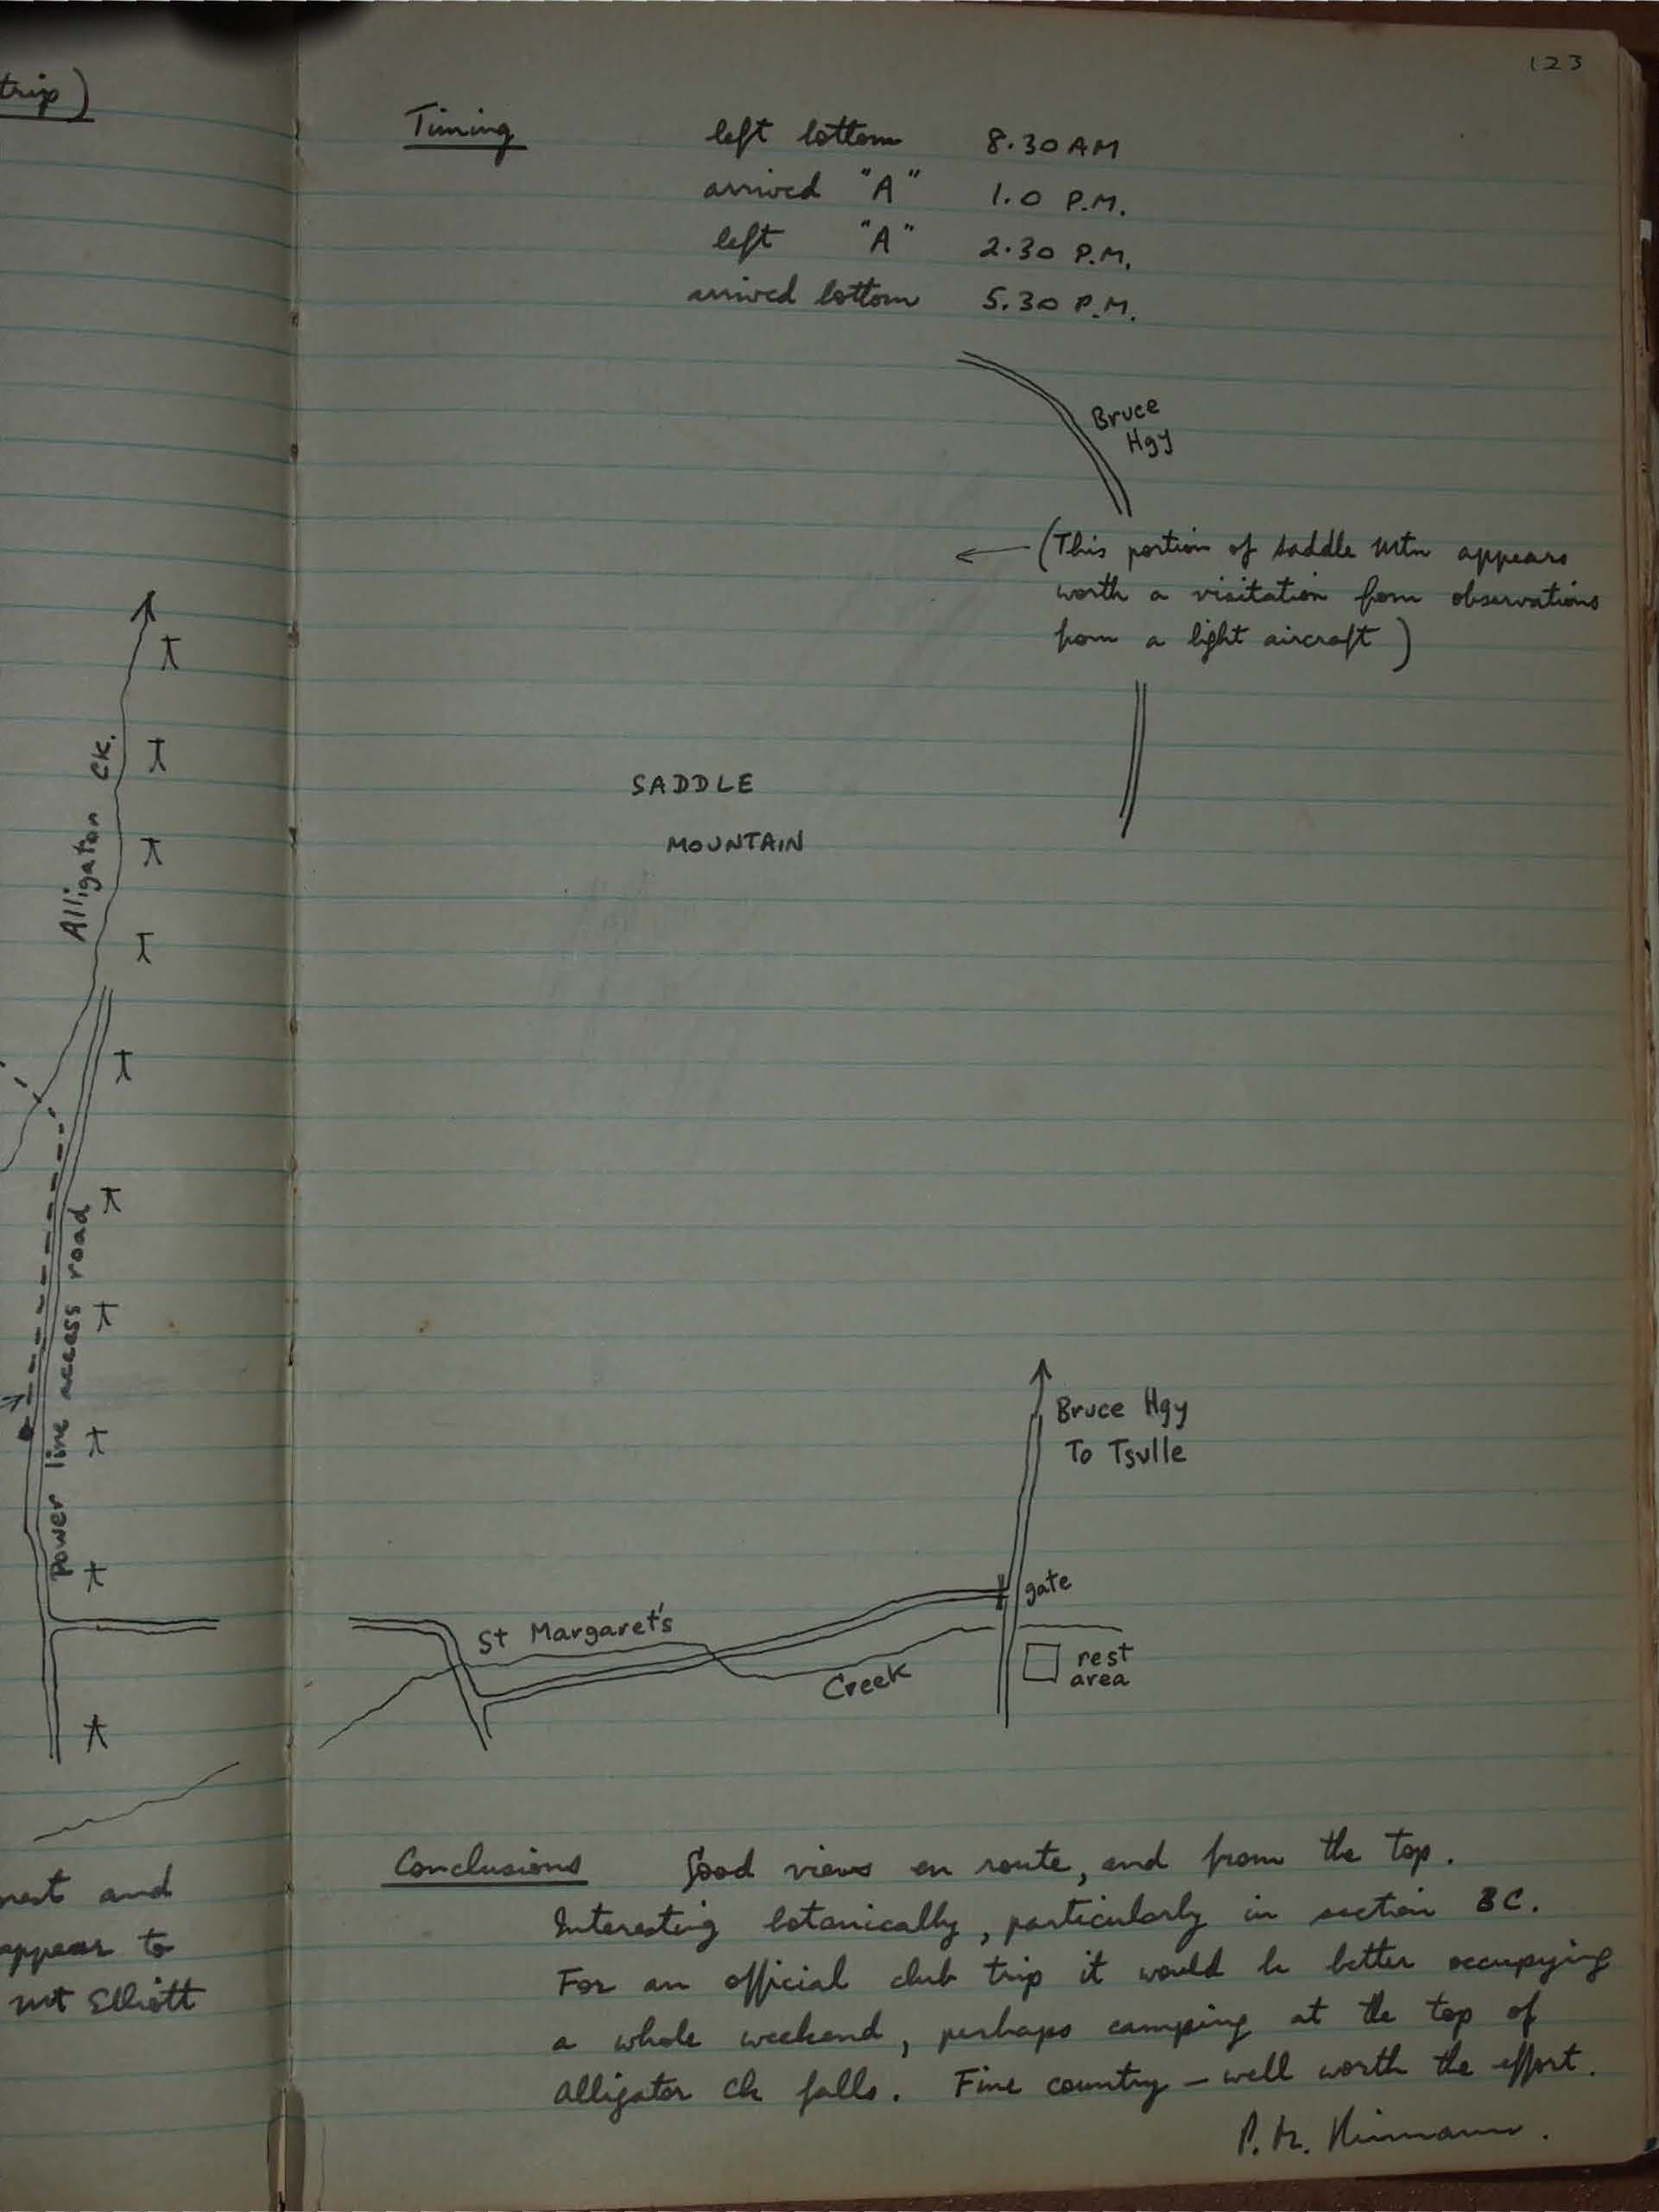 123
trip)
Timing left bottom 8.30 AM
arrived "A" 1.0 P.M.
left "A" 2.30 P.M.
arrived bottom 5.30 P.M.
Bruce
Hgy
(This portion of saddle Mtn appears
worth a visitation from observations
from a light aircraft)
Alligator Ck.
SADDLE
MOUNTAIN
Power line access road
Bruce Hgy
To Tsvlle
gate
St Margaret's
Creek
rest
area
and
appear to
Mt Elliott
Conclusions Good views en route, and from the top.
Interesting botanically, particularly in section BC.
For an official club trip it would be better occupying
a whole weekend, perhaps camping at the top of
Alligator Ck falls. Fine country – well worth the effort.